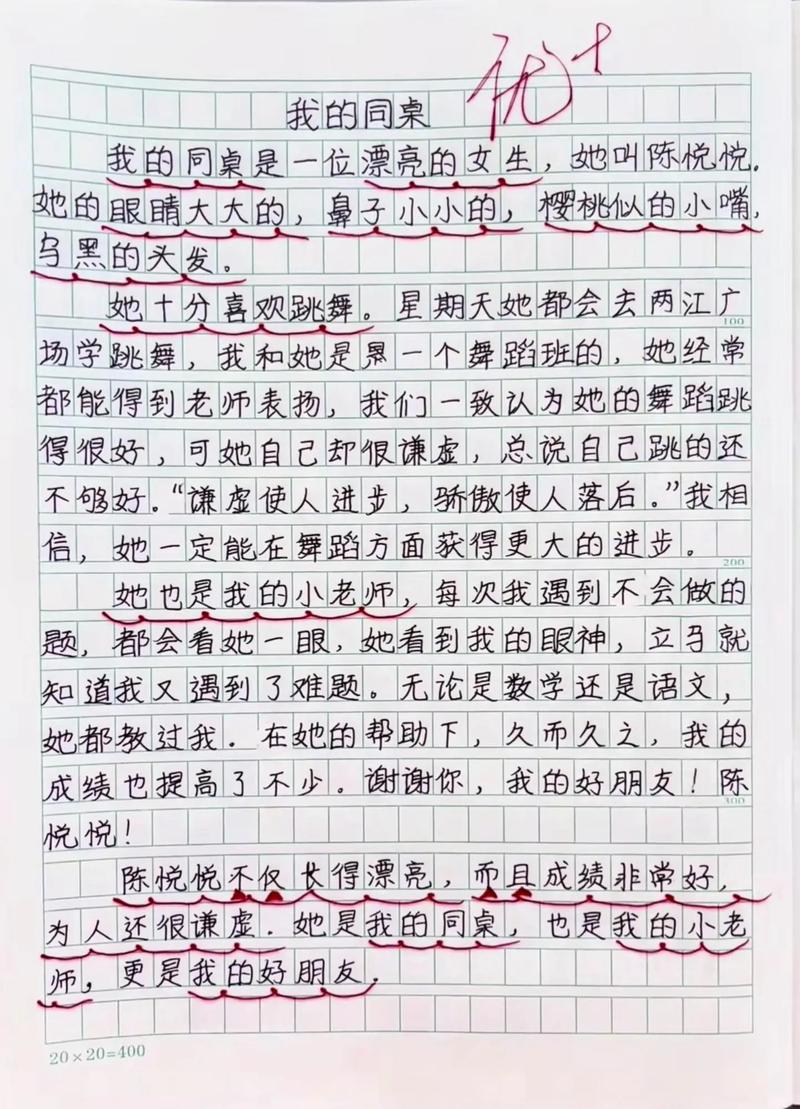 优+
我的同桌
我的同桌是一位漂亮的女生，她叫陈悦悦。
她的眼睛大大的，鼻子小小的，樱桃似的小嘴，
乌黑的头发。
她十分喜欢跳舞。星期天她都会去两江广
100
场学跳舞，我和她是一个舞蹈班的，她经常
都能得到老师表扬，我们一致认为她的舞蹈跳
得很好，可她自己却很谦虚，总说自己跳的还
不够好。“谦虚使人进步，骄傲使人落后。”我相
信，她一定能在舞蹈方面获得更大的进步。
200
她也是我的小老师，每次我遇到不会做的
题，都会看她一眼，她看到我的眼神，立马就
知道我又遇到了难题。无论是数学还是语文，
她都教过我．在她的帮助下，久而久之，我的
成绩也提高了不少。谢谢你，我的好朋友！陈
300
悦悦！
陈悦悦不仅长得漂亮，而且成绩非常好，
为人还很谦虚．她是我的同桌，也是我的小老
师，更是我的好朋友．
20×20=400